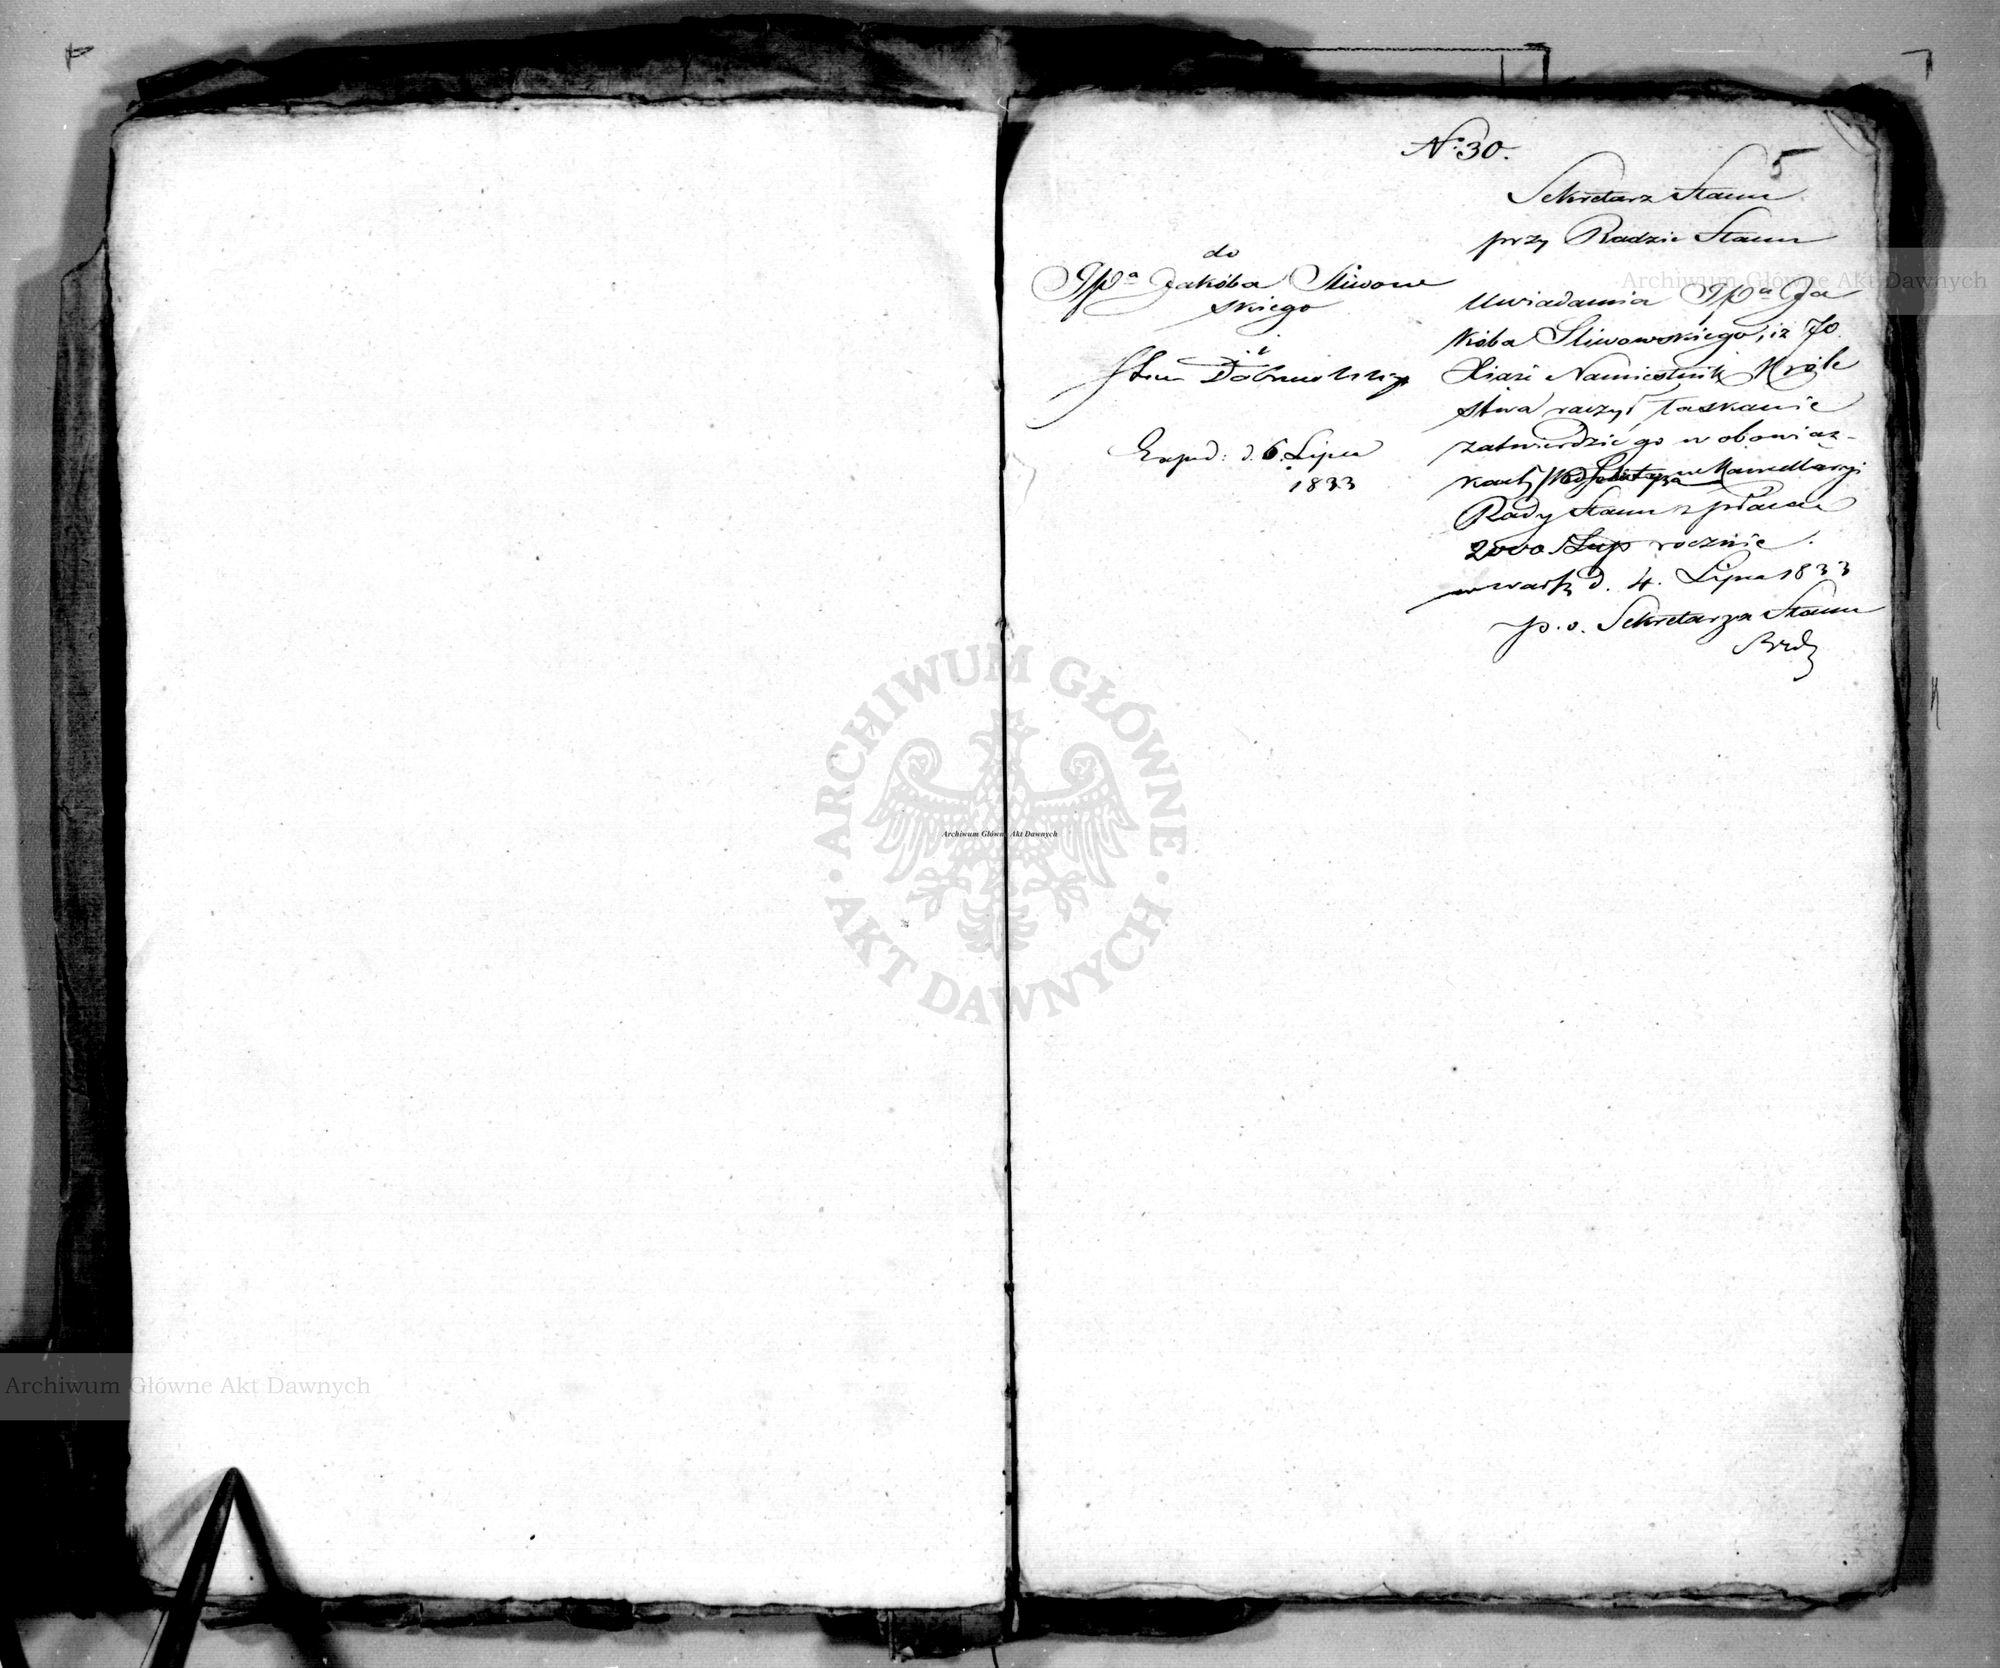 N° 30.
5
Sekretarz Stanu
przy Radzie Stanu
do
JPa Jakóba Śliwow
skiego
i
Dobrowolskiego
Exped: d. 6. Lipca
1833
Uwiadamia JPa Ja
kóba Śliwowskiego, iż JO.
Xiąże Namiestnik Króle
stwa raczył łaskawie
zatwierdzić go w obowiąz-
kach w Kancellaryi
Rady Stanu z płacą
2000 rocznie.
w Warsz d. 4. Lipca 1833
p. o. Sekretarza Stanu
Archiwum Główne Akt Dawnych
ARCHIWUM GŁÓWNE
AKT DAWNYCH
Archiwum Główne Akt Dawnych
Archiwum Główne Akt Dawnych